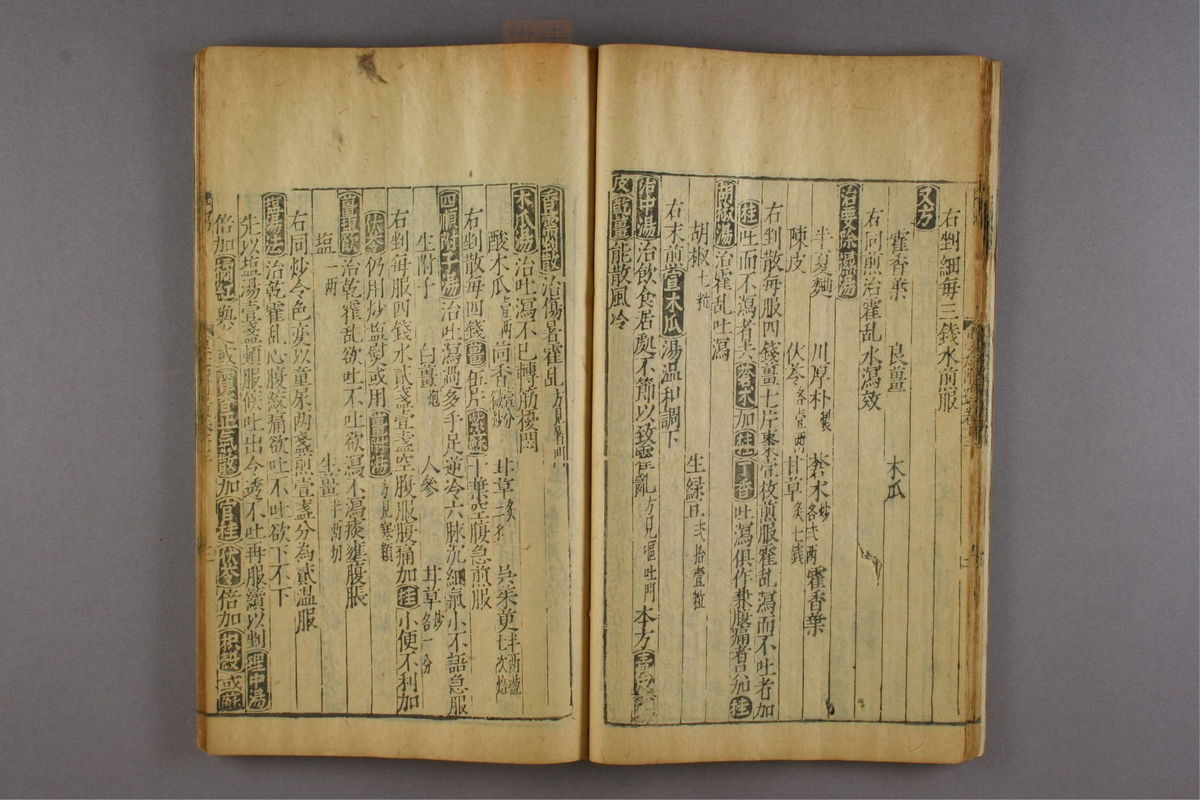 右剉細每三錢水煎服
又方
藿香葉 良薑 木瓜
右同煎治霍乱水瀉效
治要除濕湯
半夏麯 川厚朴製 蒼术炒各弍兩 藿香葉
陳皮 伏苓各壹兩 甘草炙七錢
右剉散每服四錢薑七片棗壹枚煎服霍乱瀉而不吐者加
桂吐而不瀉者去蒼术加桂丁香吐瀉俱作兼腹痛者只加桂
胡椒湯治霍乱吐瀉
胡椒七粒 生綠豆弍拾壹粒
右末煎當木瓜湯温和調下
治中湯治飲食居處不節以致霍亂方見嘔吐門本方青皮
皮乾薑能散風冷
香薷散治傷暑霍乱方見暑
木瓜湯治吐瀉不已轉筋擾悶
酸木瓜壹兩 茴香 甘草炙 吳茱萸半兩 七次焙
右剉散每四錢薑五片紫蘇十葉空腹急煎服
四順附子湯治吐瀉過多手足逆冷六脉沉細氣小不語急服
生附子 白薑炮 人參 甘草炒各一分
右剉每服四錢水貳盞壹盞空腹服腹痛加桂小便不利加
伏苓仍用炒塩熨或用薑附湯方見寒類
薑塩飲治乾霍乱欲吐不吐欲瀉不瀉痰壅腹脹
塩一兩 生薑半兩切
右同炒令色变以童尿两盞煎壹盞分為貳温服
塩湯法治乾霍乱心腹絞痛欲吐不吐欲下不下
先以塩湯壹盞頓服候吐出令透不吐再服續以剉理中湯
倍加橘紅與之或藿香正气散加官桂伏苓倍加枳殼或蘇